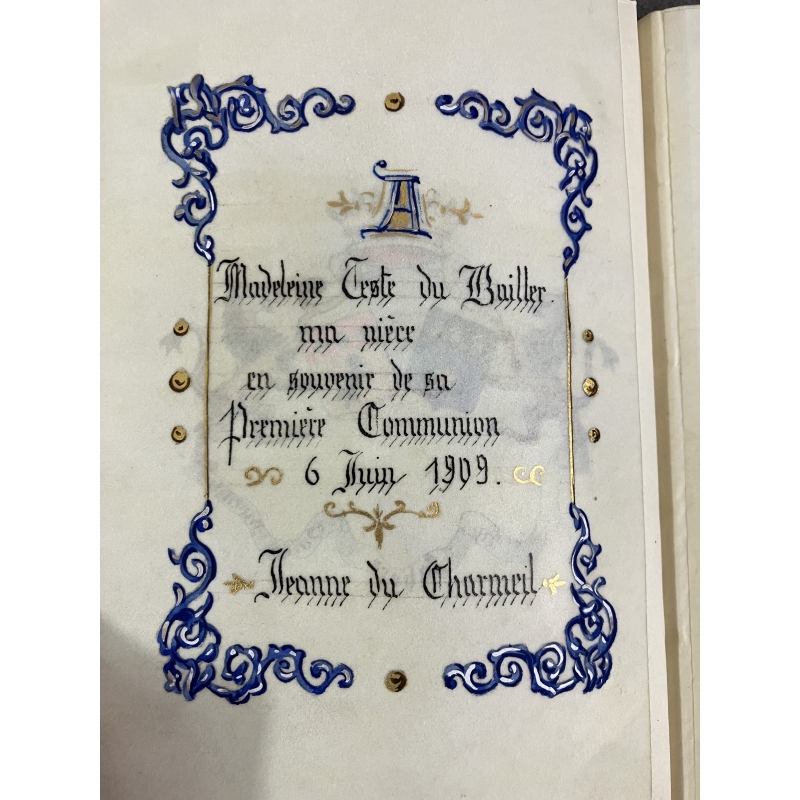 A
Madeleine Teste du Bailler.
ma nièce
en souvenir de sa
Première Communion
6 Juin 1909.
Jeanne du Charmeil